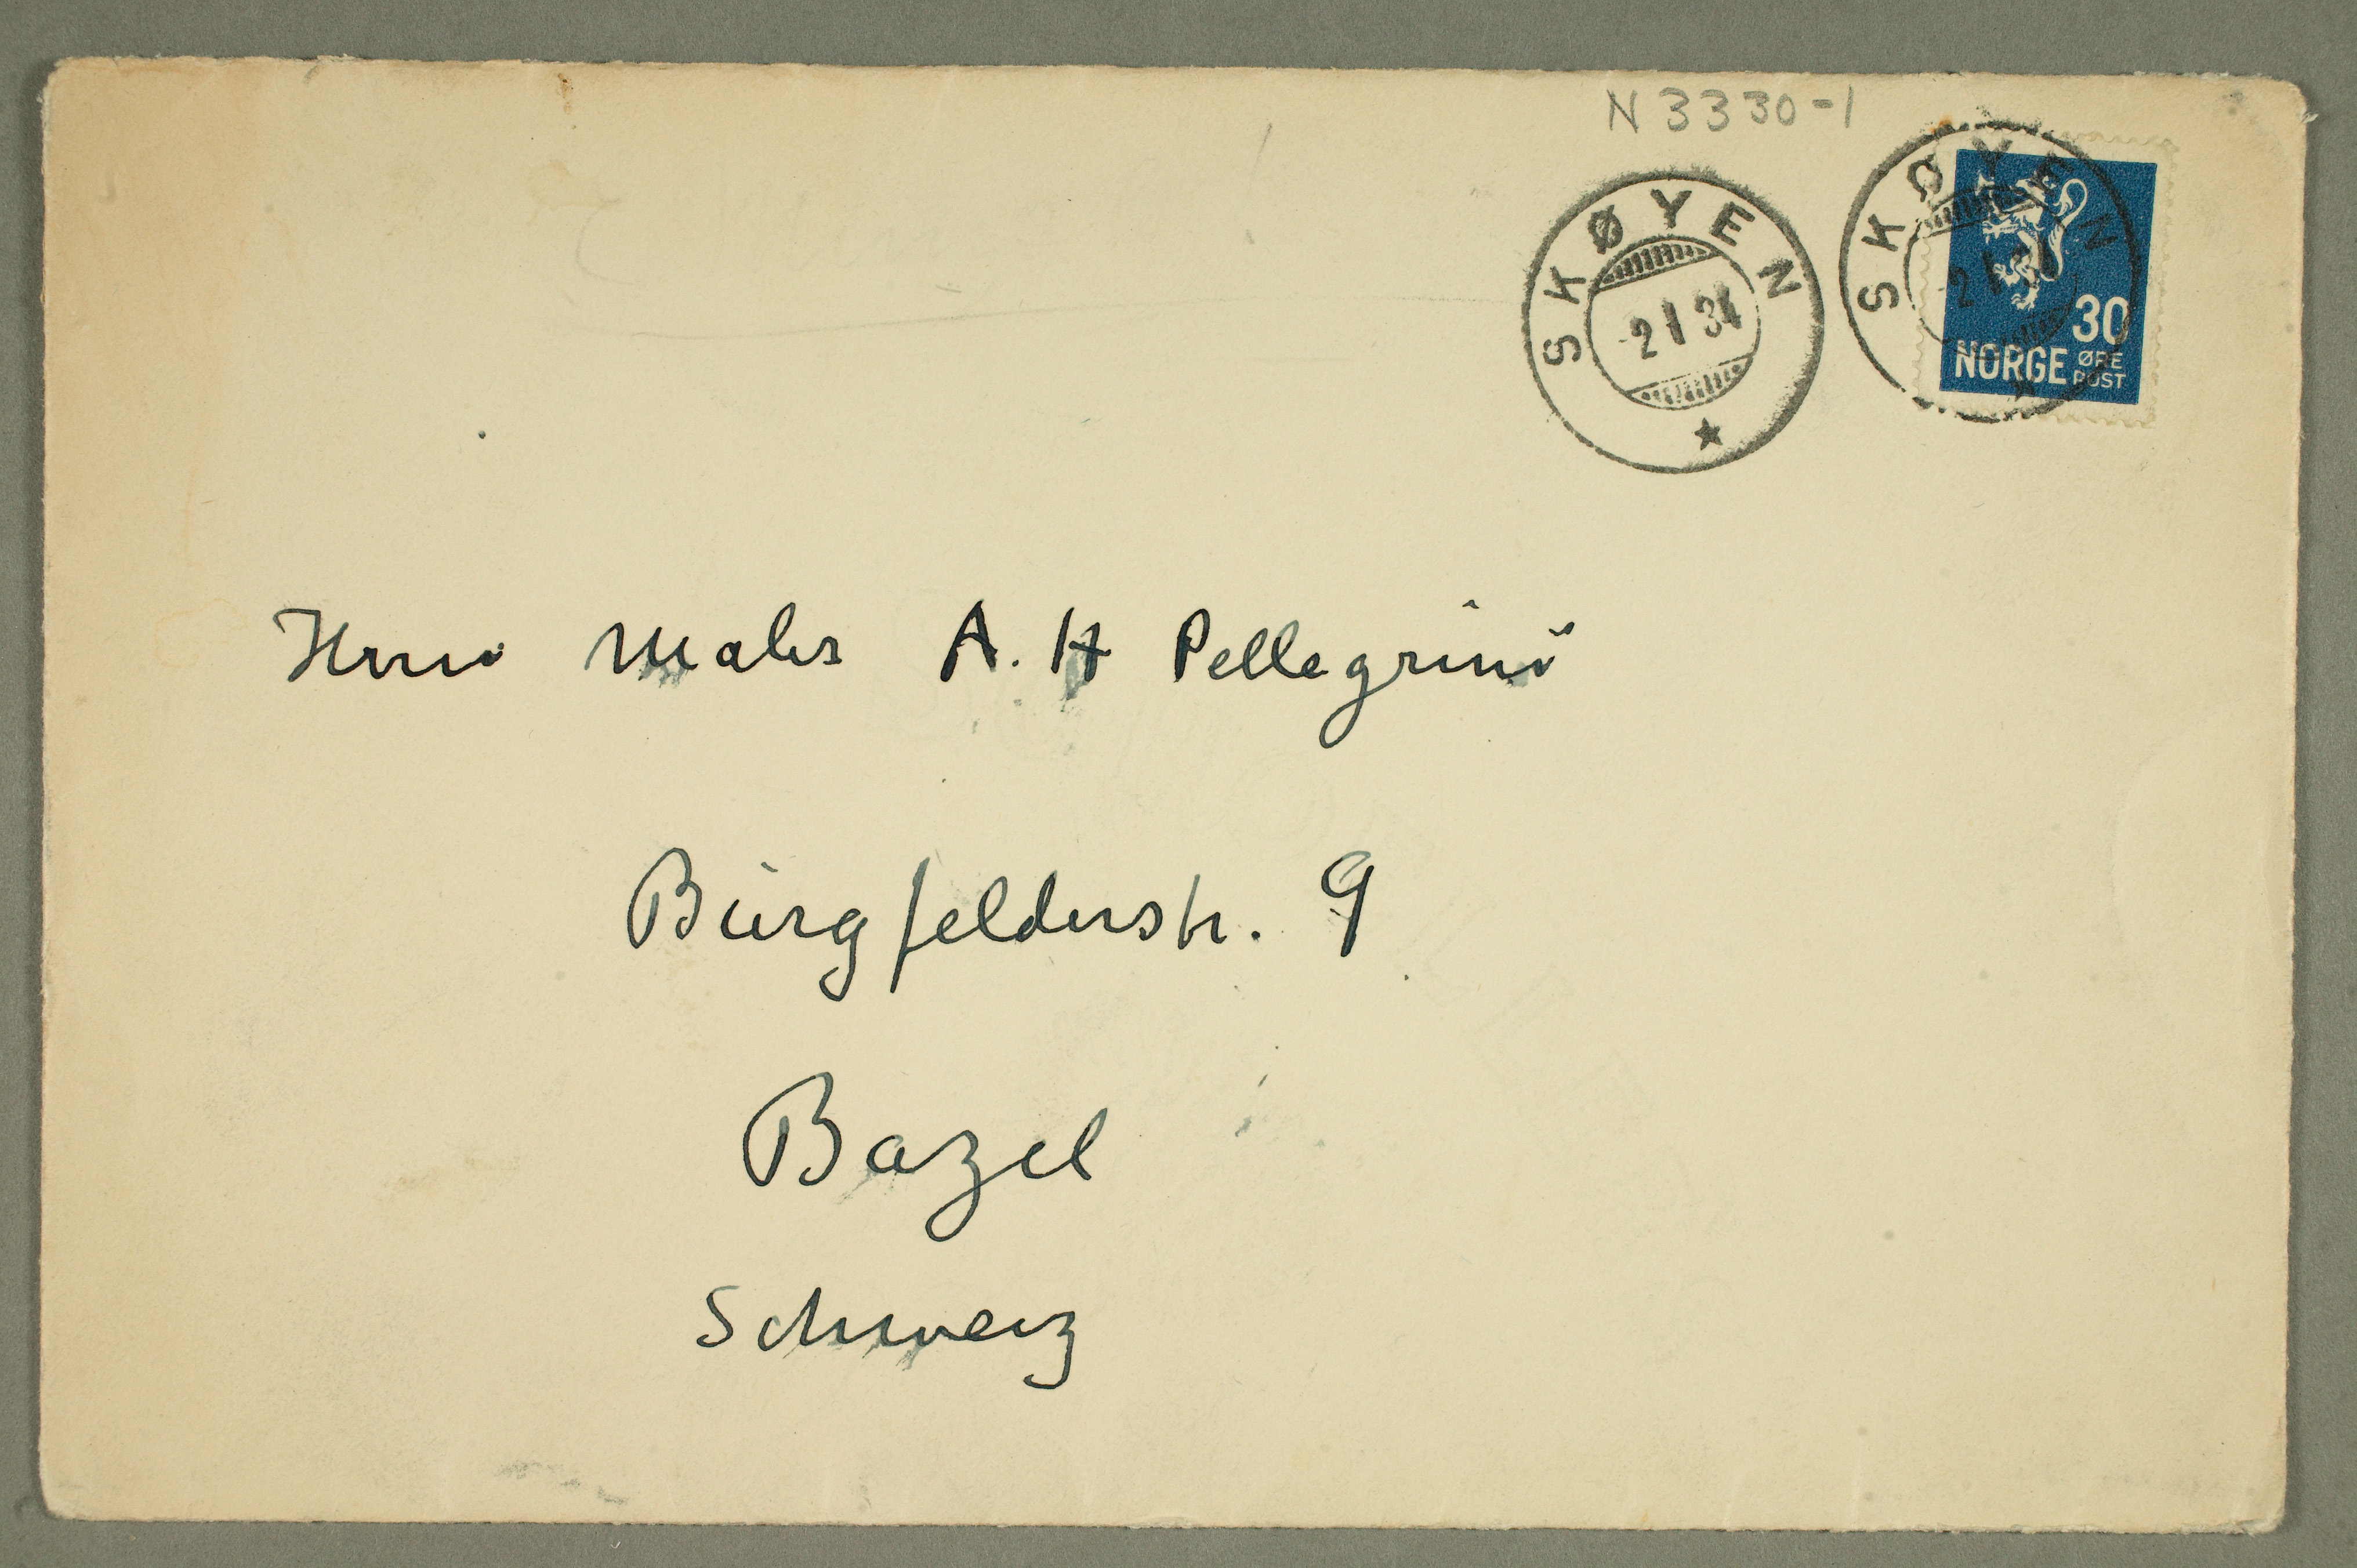 N 3330-1
SKØYEN
-2 1 34
SKØYEN
-2 1
30
NORGE ØRE
POST
Herrn Maler A. H Pellegrini
Burgfelderstr. 9
Bazel
Schweiz